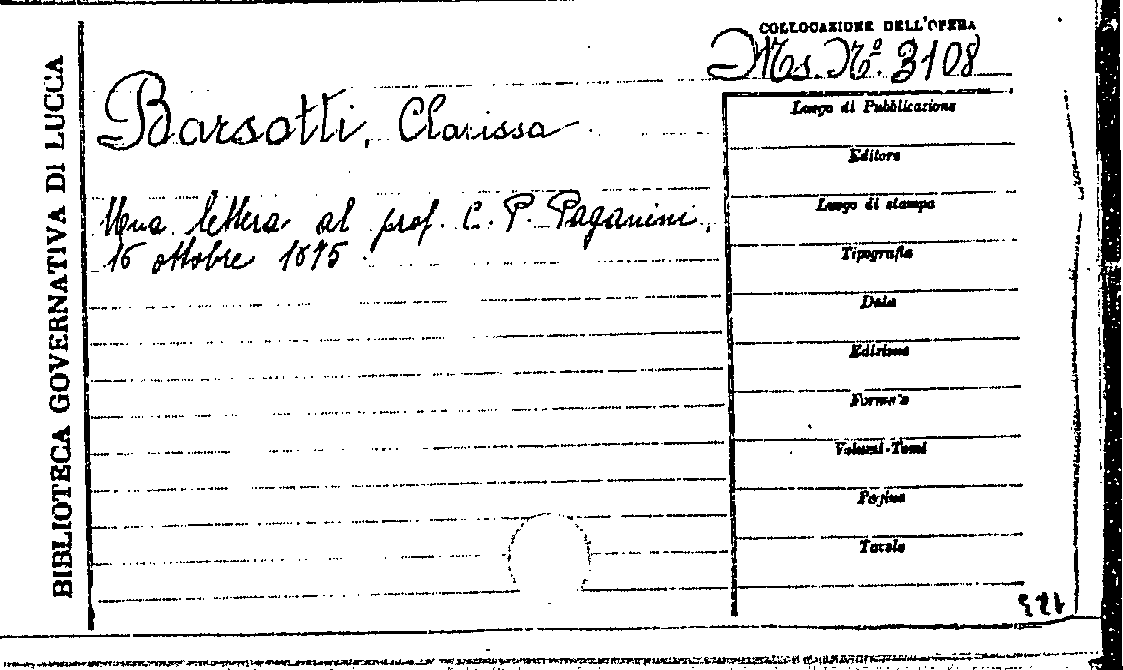 BIBLIOTECA GOVERNATIVA DI LUCCA
COLLOCAZIONE DELL'OPERA
Ms. Nº. 3108
Barsotti, Clarissa
Una lettera al prof. C. P. Paganini,
16 ottobre 1875
Luogo di Pubblicazione
Editore
Luogo di stampa
Tipografia
Data
Edizione
Formato
Volumi-Tomi
Pagine
Tavole